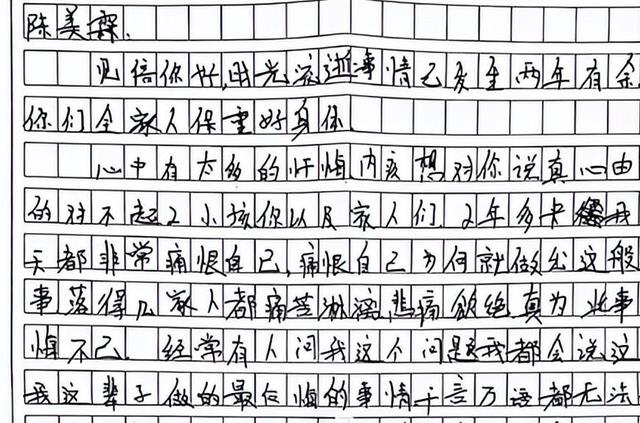 陈美霖.
见信你好,时光流逝事情已发至两年有余
你们全家人保重好身体.
心中有太多的忏悔内疚想对你说真心由
的对不起2小孩你以及家人们.2年多来我
天都非常痛恨自己,痛恨自己为何就做出这般
事落得几家人都痛苦淋漓悲痛欲绝真为此事
悔不已. 经常有人问我这个问题我都会说这
我这辈子做的最后悔的事情千言万语都无法